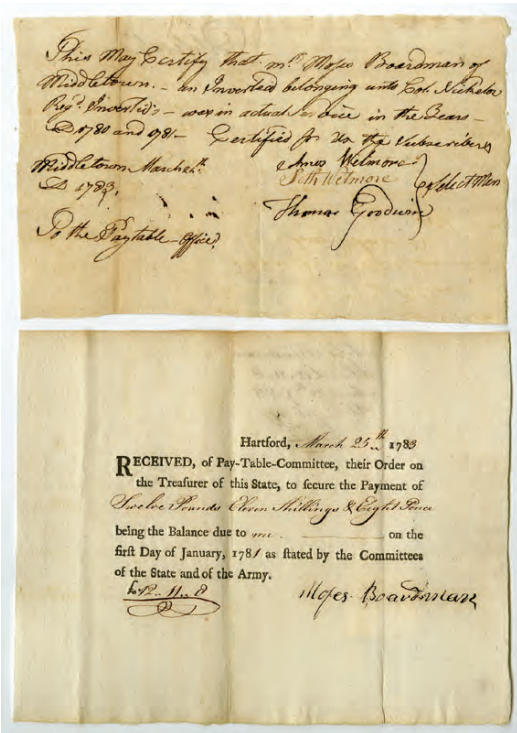 This May Certify that mr. Moses Boardman of
Middletown. – an Inverted belonging unto Col. Nichola
Regt. Inverlid's – was in actual Service in the Years –
AD 1780 and 1781 – Certified for Us the Subscribers
Middletown March
AD 1783.
Amos Wetmore
Seth Wetmore
Select Men
Thomas Goodwin
To the Paytable – Office
Hartford, March 25th 1783
RECEIVED, of Pay-Table-Committee, their Order on
the Treasurer of this State, to secure the Payment of
Twelve Pounds Eleven Shillings & Eight Pence
being the Balance due to me on the
first Day of January, 1781 as stated by the Committees
of the State and of the Army.
£12–11–8
Moses Boardman